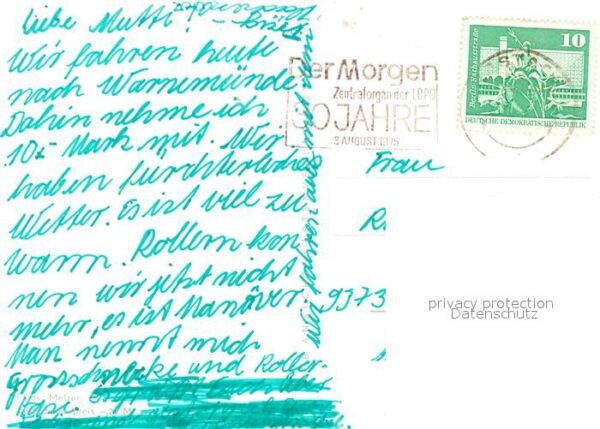 Liebe Mutti!
Wir fahren heute
nach Warnemünde
Dahin nehme ich
10.- Mark mit. Wir
haben fürchterliches
Wetter. Es ist viel zu
warm. Rollern kön-
nen wir jetzt nicht
mehr, es ist Manöver.
Man nennt mich
und Roller-
wir fahren
Der Morgen
Zentralorgan der LDPD
30 JAHRE
3 AUGUST 1975
10
DEUTSCHE DEMOKRATISCHE REPUBLIK
Frau
R
9373
privacy protection
Datenschutz